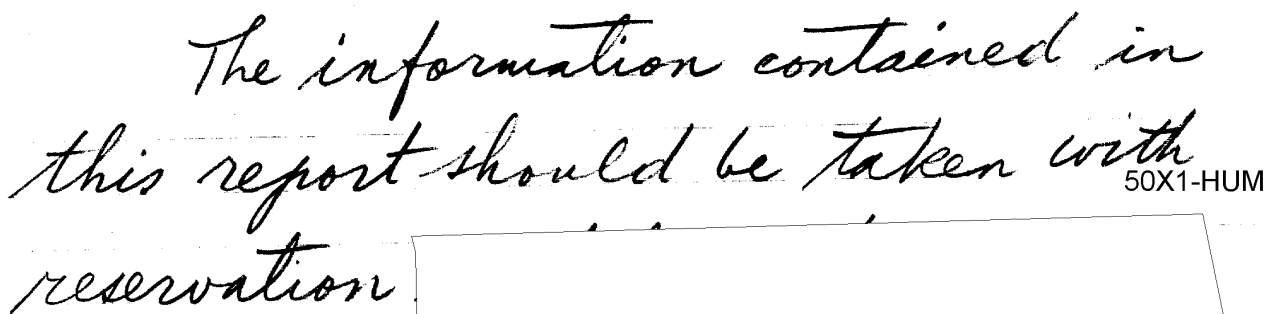 The information contained in
this report should be taken with
50X1-HUM
reservation